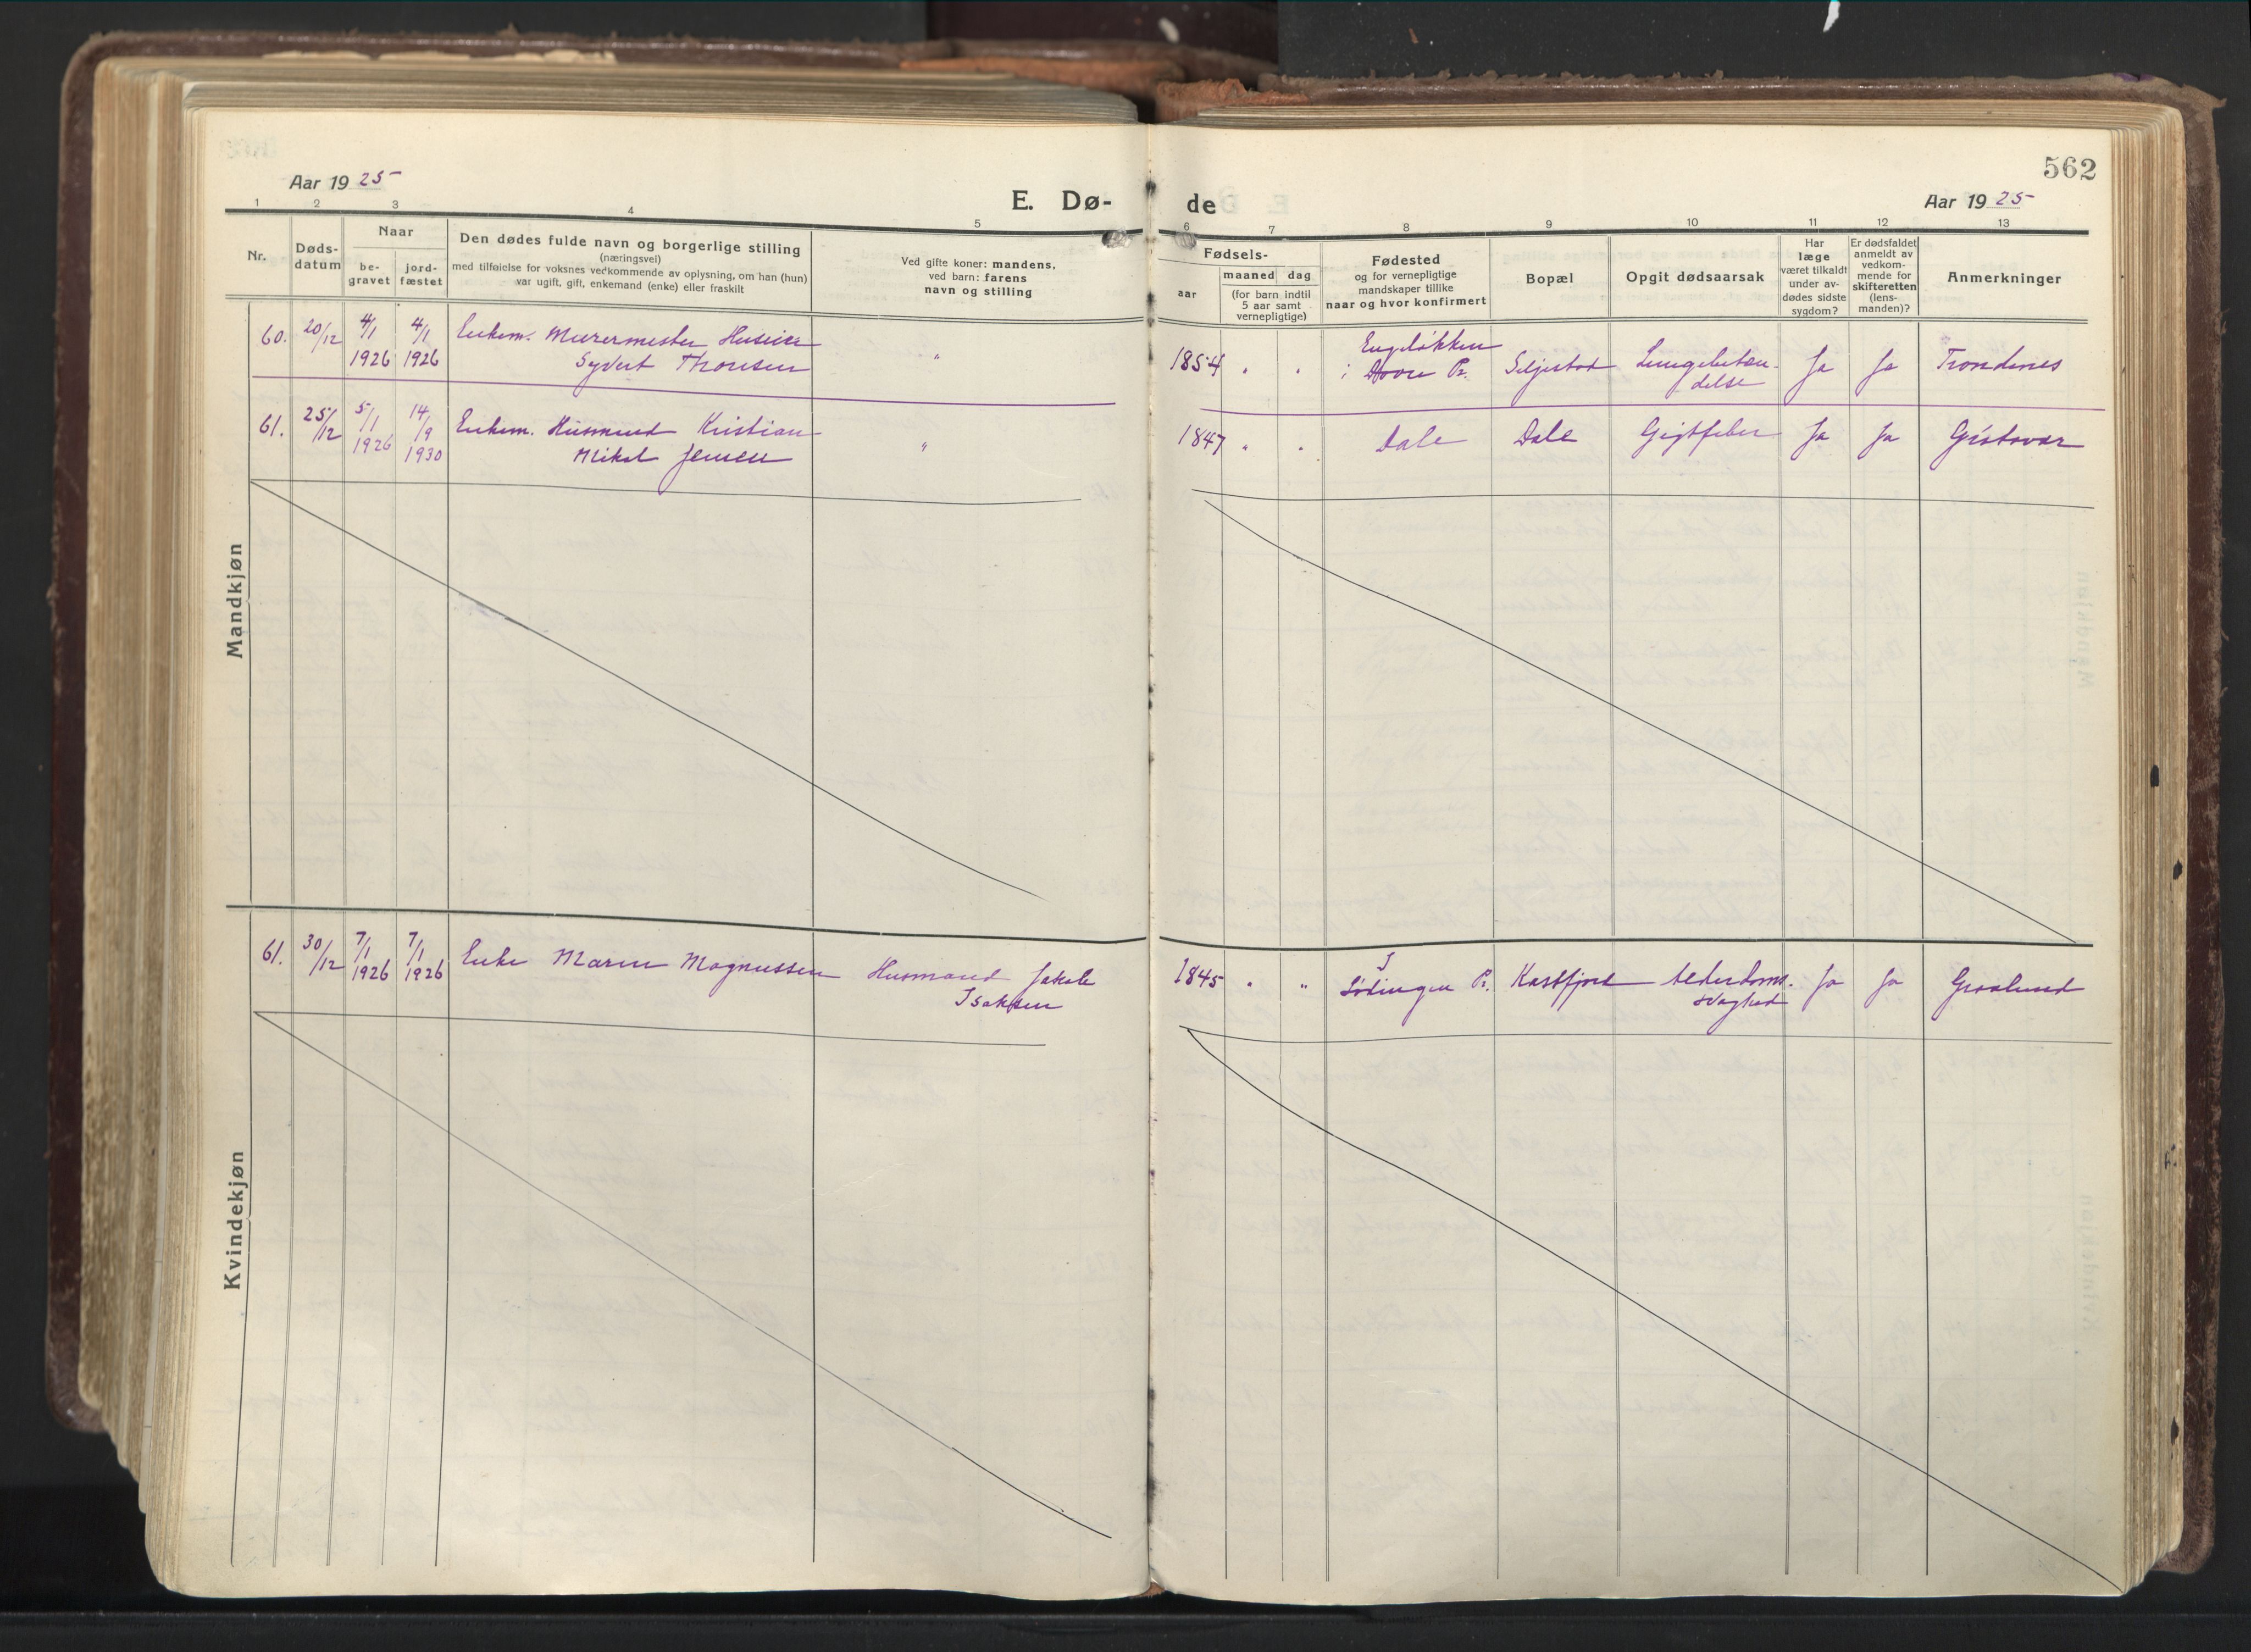 562
Aar 1925
E. Dø-
de
Aar 1925
1 2 3 4 5 6 7 8 9 10 11 12 13
Nr.
Døds-
datum
Naar
be-
gravet
jord-
fæstet
Den dødes fulde navn og borgerlige stilling
(næringsvei)
med tilføielse for voksnes vedkommende av oplysning, om han (hun)
var ugift, gift, enkemand (enke) eller fraskilt
Ved gifte koner: mandens,
ved barn: farens
navn og stilling
Fødsels-
aar
maaned dag
(for barn indtil
5 aar samt
vernepligtige)
Fødested
og for vernepligtige
mandskaper tillike
naar og hvor konfirmert
Bopæl
Opgit dødsaarsak
Har
læge
været tilkaldt
under av-
dødes sidste
sygdom?
Er dødsfaldet
anmeldt av
vedkom-
mende for
skifteretten
(lens-
manden)?
Anmerkninger
Mandkjøn
60. 20/12 4/1 1926 4/1 1926 Enkem. Murermester Huseier
Syvert Thorsen " 1854 " "
i Dovre Pr. Seljestad Lungebetæn-
delse Ja Ja Trondenes
61. 25/12 5/1 1926 14/9 1930 Enkem. Husmand Kristian
Mikal Jensen " 1847 " " Dale Dale Gigtfeber Ja Ja
Kvindekjøn
61. 30/12 7/1 1926 7/1 1926 Enke Maren Magnussen Husmand Jakob
Isaksen 1845 " " I
Lødingen Pr. Kasfjord Alderdoms-
svaghed Ja Ja Graalund